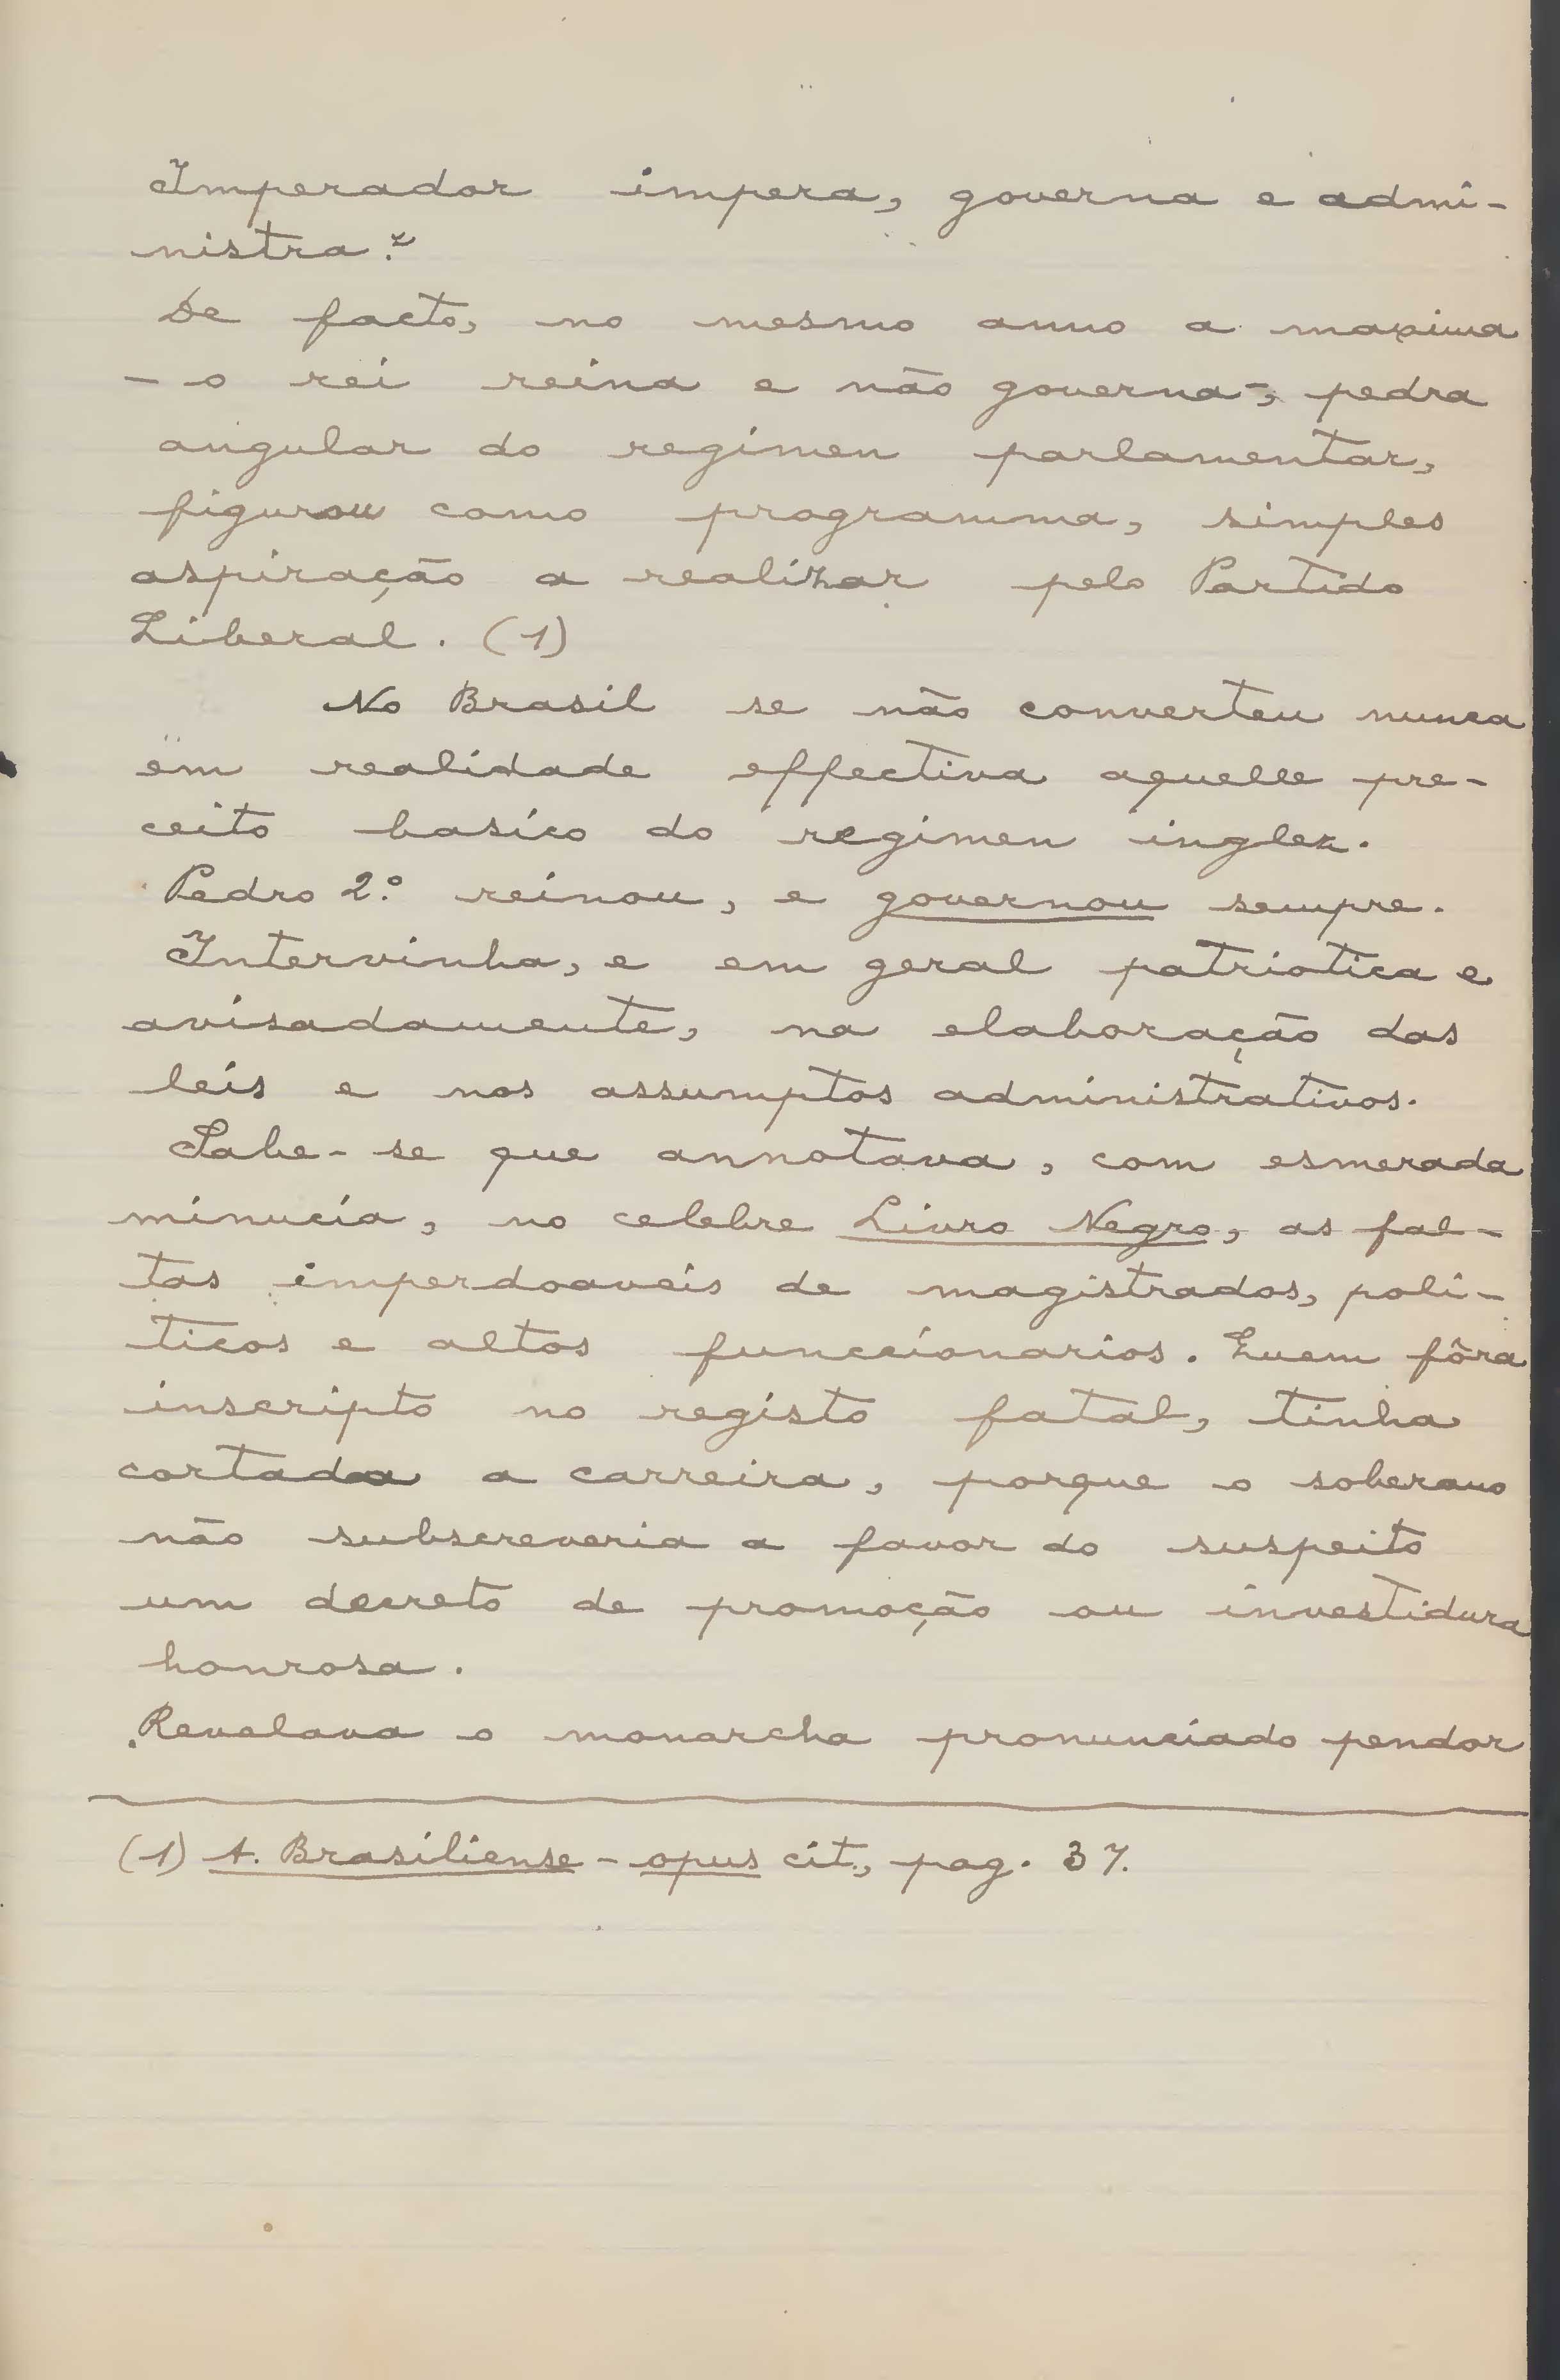 Imperador impera, governa e admi-
nistra."
De facto, no mesmo anno a maxima
- o rei reina e não governa -, pedra
angular do regimen parlamentar,
figurou como programma, simples
aspiração a realizar pelo Partido
Liberal. (1)
No Brasil se não converteu nunca
em realidade effectiva aquelle pre-
ceito basico do regimen inglez.
Pedro 2º reinou, e governou sempre.
Intervinha, e em geral patriotica e
avisadamente, na elaboração das
leis e nos assumptos administrativos.
Sabe-se que annotava, com esmerada
minucia, no celebre Livro Negro, as fal-
tas imperdoaveis de magistrados, poli-
ticos e altos funccionarios. Quem fôra
inscripto no registo fatal, tinha
cortada a carreira, porque o soberano
não subscreveria a favor do suspeito
um decreto de promoção ou investidura
honrosa.
Revelava o monarcha pronunciado pendor
(1) A. Brasiliense - opus cit., pag. 37.